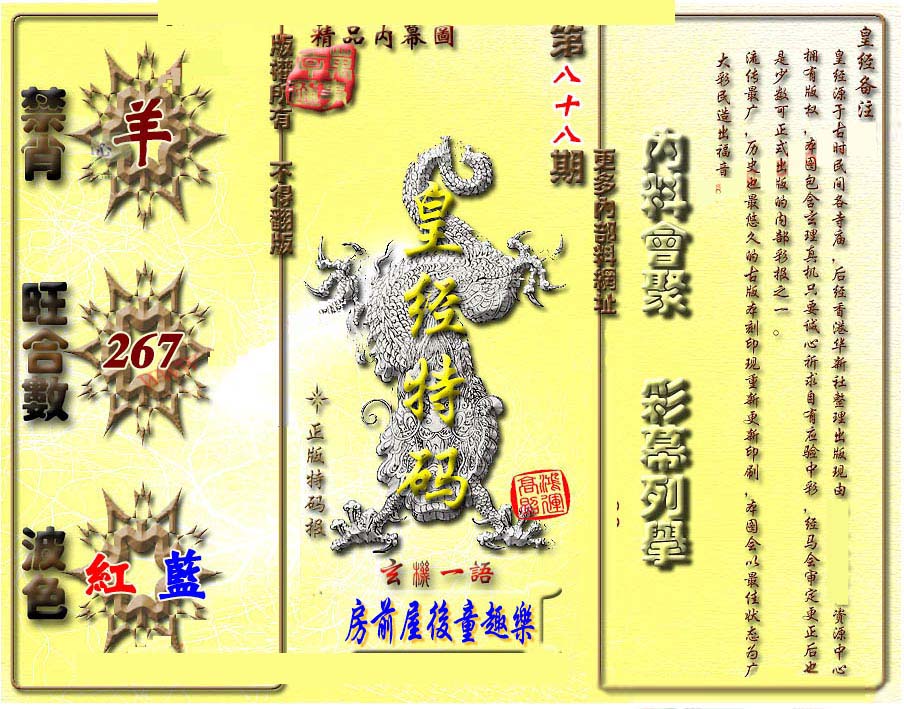 精品内幕圖
版權所有 不得翻版
第八十八期
更多內部料網址
禁肖
羊
旺合數
267
波色
紅 藍
皇经特码
正版特码报
鴻運高照
玄機一語
房前屋後童趣樂
內料會聚 彩幕列舉
皇经备注
皇经源于古时民间各寺庙,后经香港华新社整理出版现由 资源中心
拥有版权,本图包含玄理真机只要诚心祈求自有应验中彩,经马会审定更正后也
是少数可正式出版的内部彩报之一。
流传最广,历史也最悠久的古版本刻印现重新更新印刷,本图会以最佳状态为广
大彩民造出福音